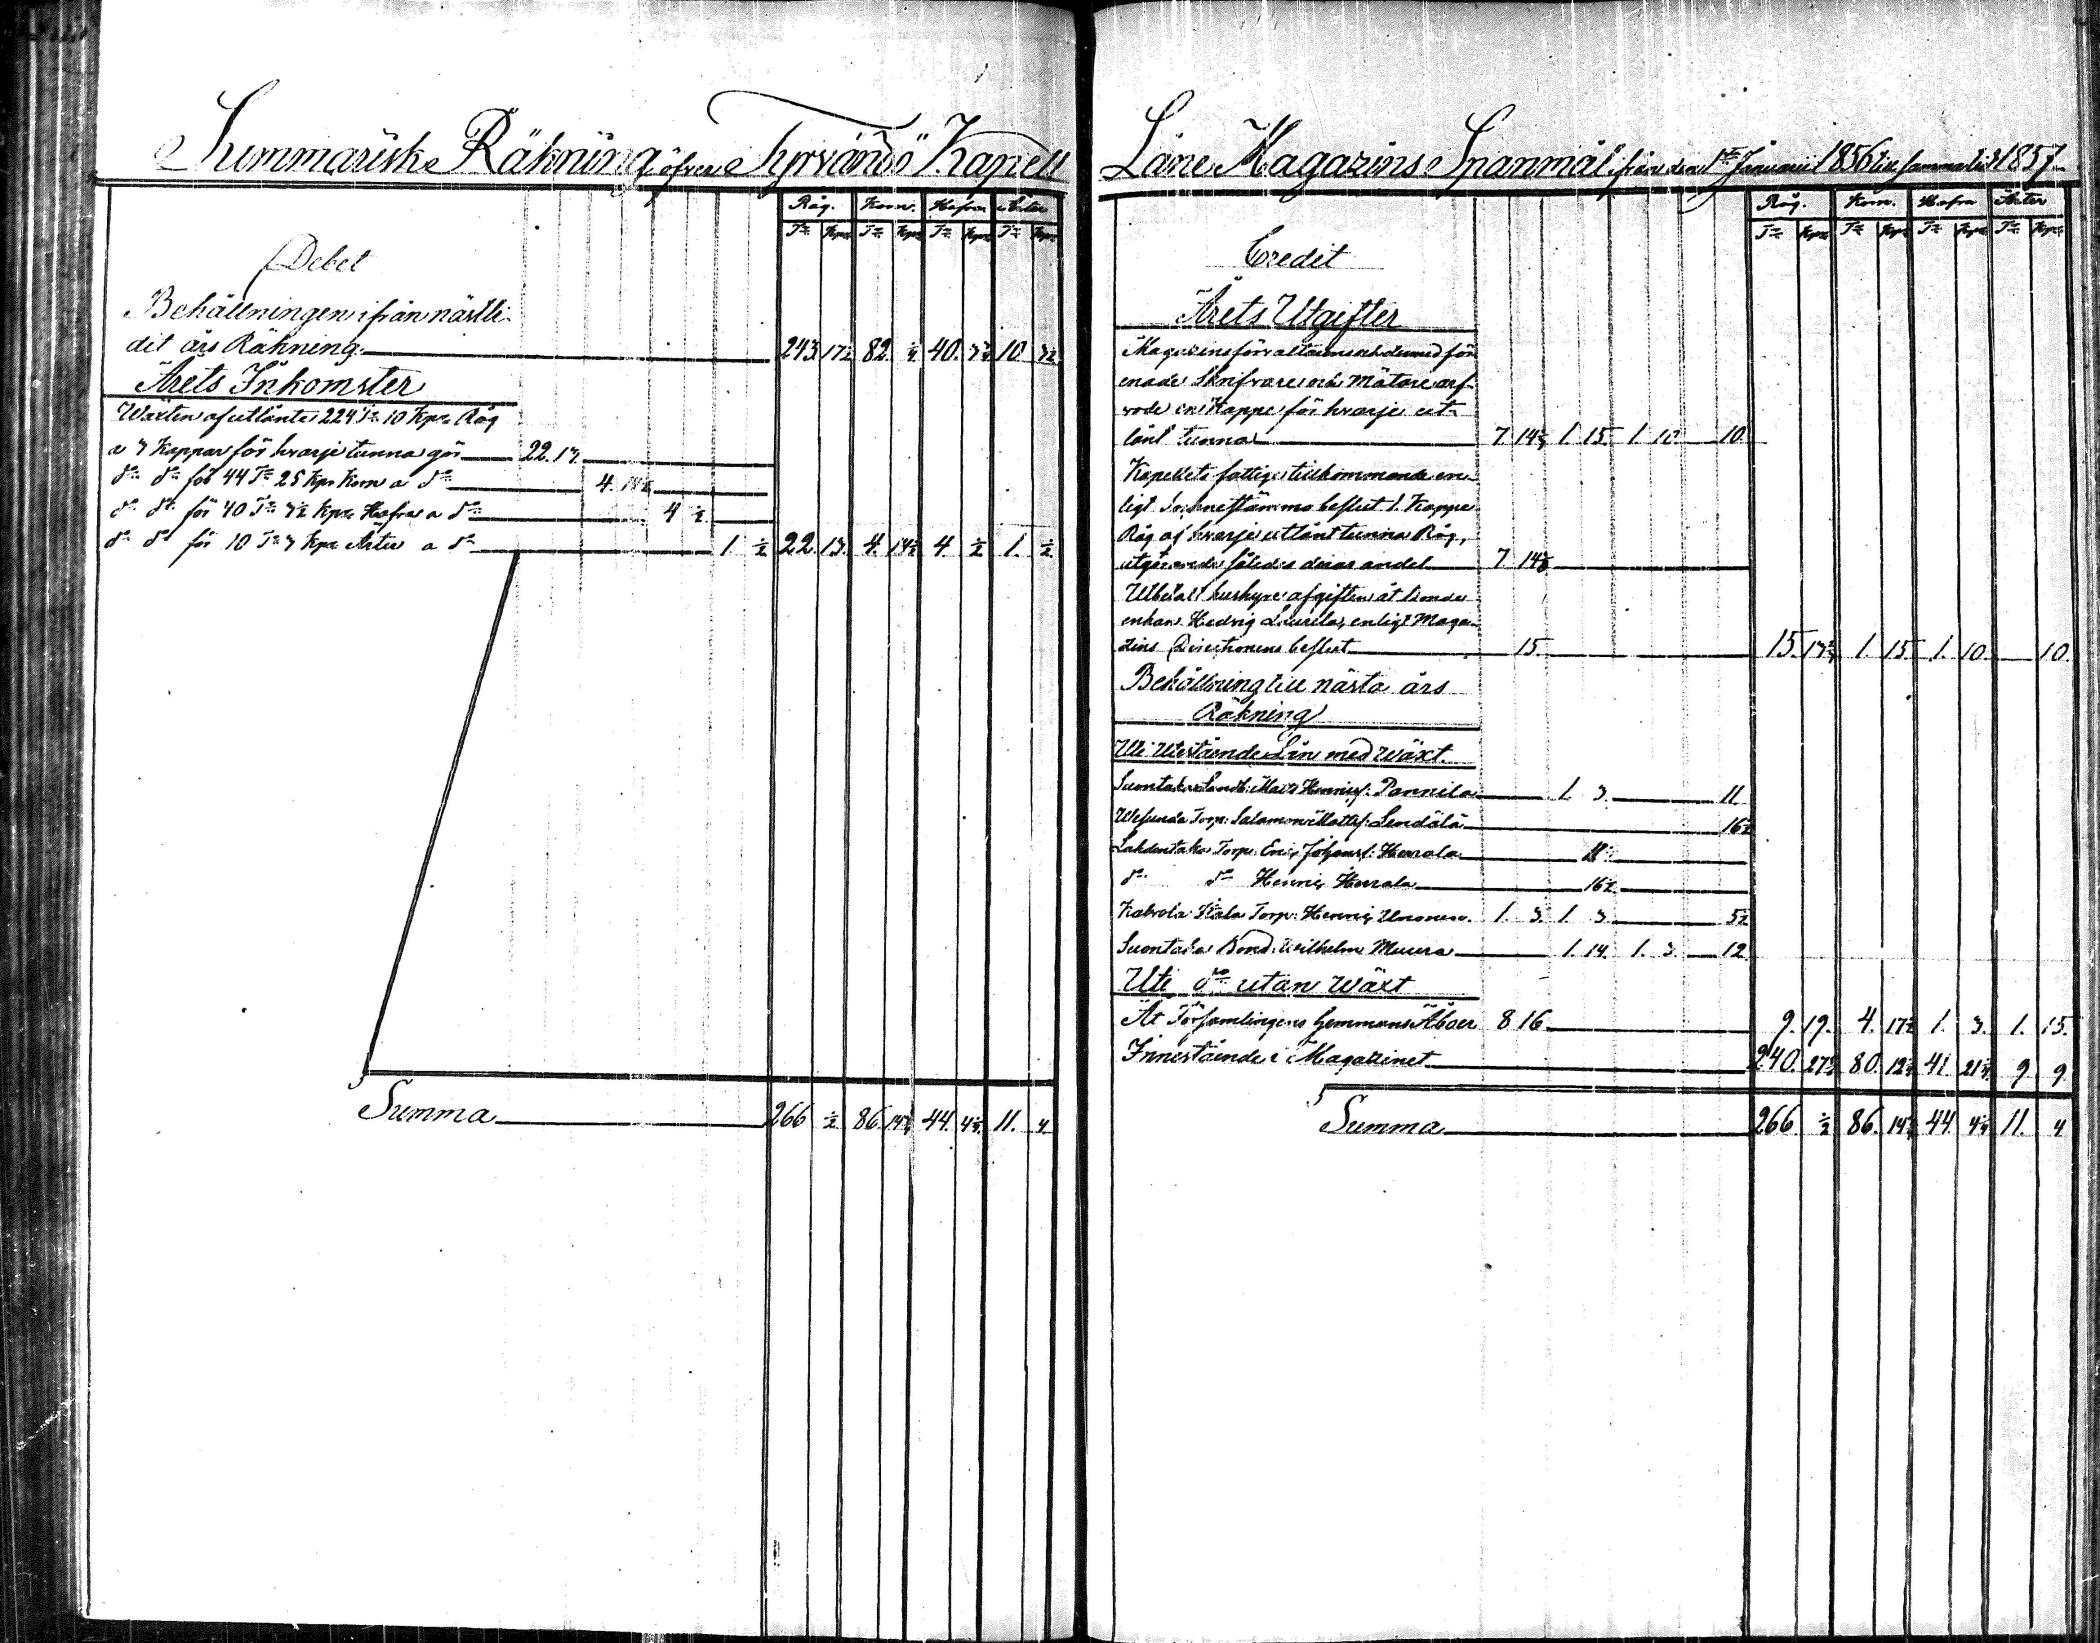 Summarisk Räkning öfver Tyrvändö Kapell
Råg. Korn. Hafra Ärter
Tr Kpr Tr Kpr Tr Kpr Tr Kpr
Debet
Behållningen ifrån nästli-
dit års Räkning 243. 17½ 82. 40. 10.
Årets Inkomster
Wäxten af utlånte 224 Tr 10 Kpr Råg
a 3 Kappar för hvarje tunna gör 22. 13.
do do för 44 Tr 25 Kpr Korn a do 4. 14½
do do för 40 Tr 3½ Kpr Hafra a do 4 ½
do do för 10 Tr 3 Kpr Ärter a do 1 ½ 22. 13. 4. 14½ 4. ½ 1. ½
Summa 266 ½ 86. 14¾ 44. 4¼ 11. 4.
Låne Magazins Spanmål ifrån den 1ste Januarii 1856 till samma tid 1857.
Råg. Korn. Hafra Ärter
Tr Kpr Tr Kpr Tr Kpr Tr Kpr
Credit
Årets Utgifter
Magazinsförvaltarens och dermed för-
enade Skrifvare och Mätare arf-
vode en Kappe för hvarje ut-
lånt tunna 7 14½ 1. 15. 1. 10 10.
Kapellets fattige tillkommande en-
ligt Sockneståmmo beslut 1. Kappe
Råg af hvarje utlånt tunna Råg,
utgörande således deras andel 7 14½
Utbetalt hushyre afgiften åt bonde
enkan Hedvig Laurila, enligt Maga-
zins Directionens beslut 15. 15. 1. 15. 1. 10. 10.
Behållning till nästa års
Räkning
Uti Utestående Lån med Wäxt.
Suontaka Landb: Matts Henrics: Pannila 1. 3. 11.
Wesunda Torp: Salamon Mattss: Sendölä 16½
Lahdentaka Torp: Eric Johanss: Heurala 11
do do Henric Heurala 16½
Kalvola Torp: Henric Uronen 1. 3. 1. 3. 5½
Suontaka Bond: Wilhelm Muura 1. 14. 1. 3. 12
Uti do utan Wäxt
Åt Församlingens Hemmans Åboer 8 16 9. 19. 4. 17½ 1. 3. 1. 15.
Innestående i Magazinet 240. 27½ 80. 12¼ 41. 21¼ 9 9.
Summa 266. ½ 86. 14¾ 44. 4¼ 11. 4